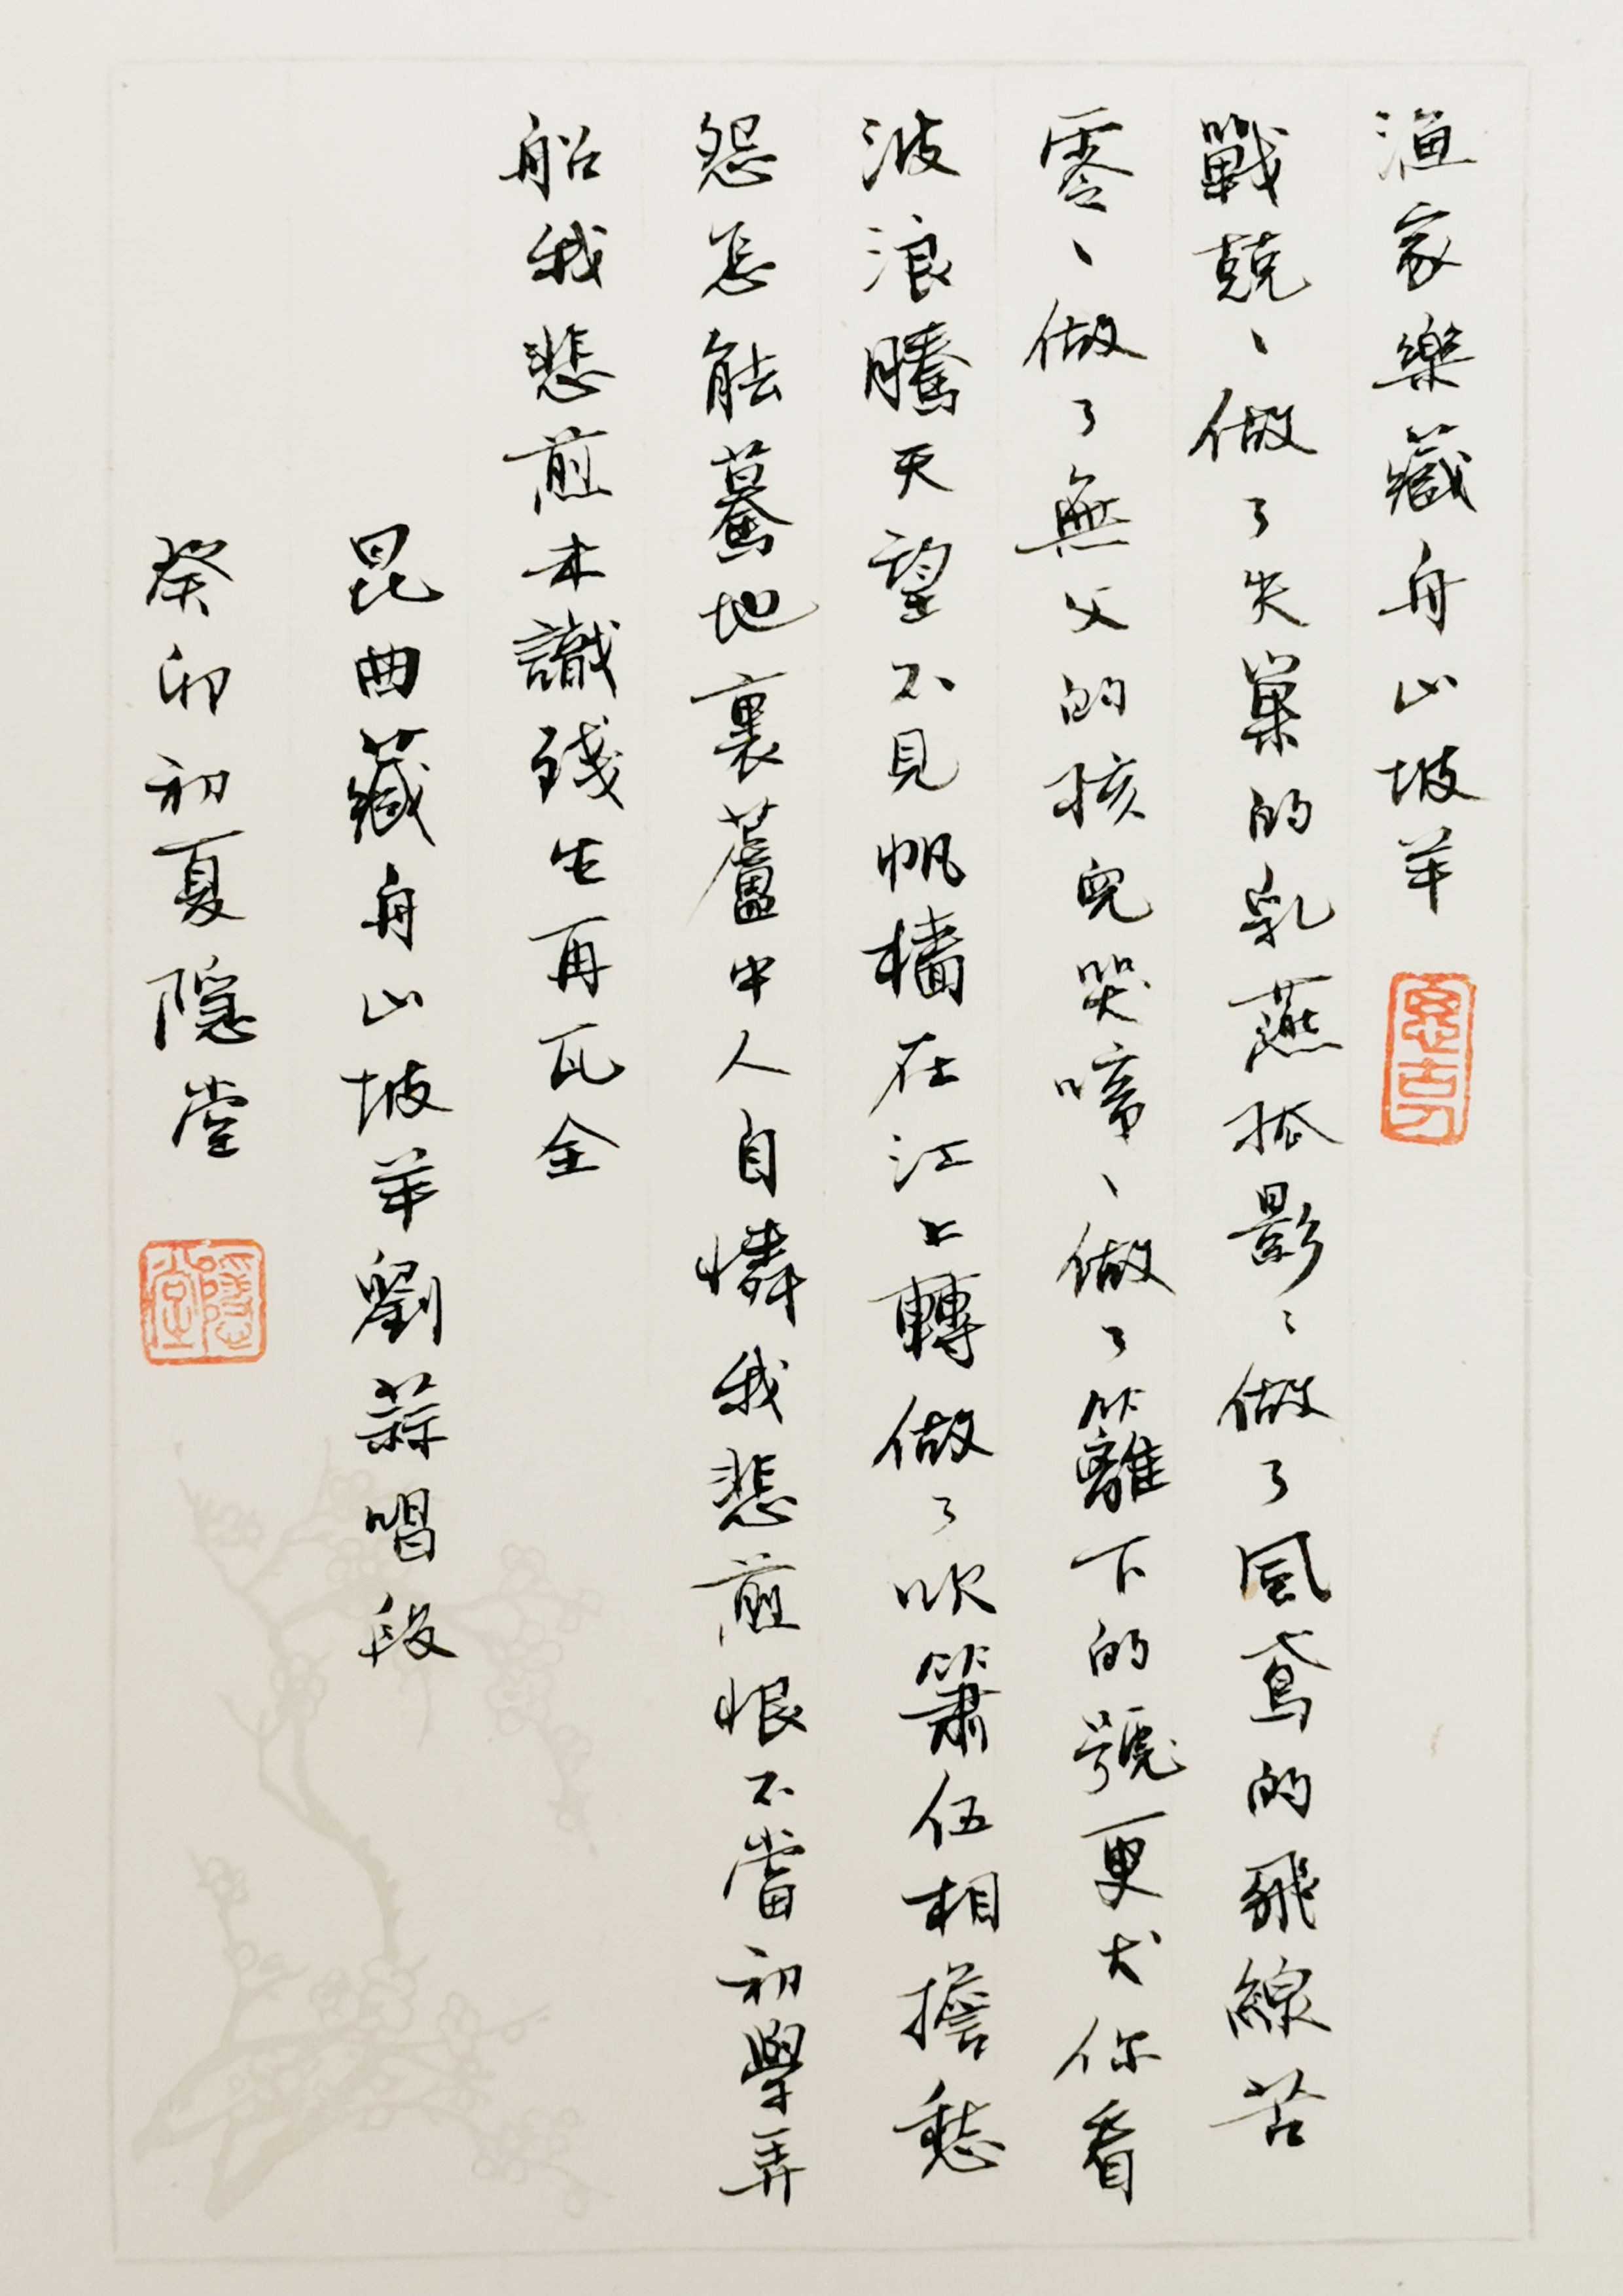 漁家樂藏舟山坡羊
戰兢、做了失巢的乳燕孤影、做了風鳶的飛線苦
零、做了無父的孩兒哭啼、做了籬下的號更犬你看
波浪騰天望不見帆檣在江上轉做了吹簫伍相擔愁
怨怎能驀地裏蘆中人自憐我悲煎恨不當初學弄
船我悲煎未識殘生再瓦全
昆曲藏舟山坡羊劉蒜唱段
癸卯初夏隱堂
隱堂